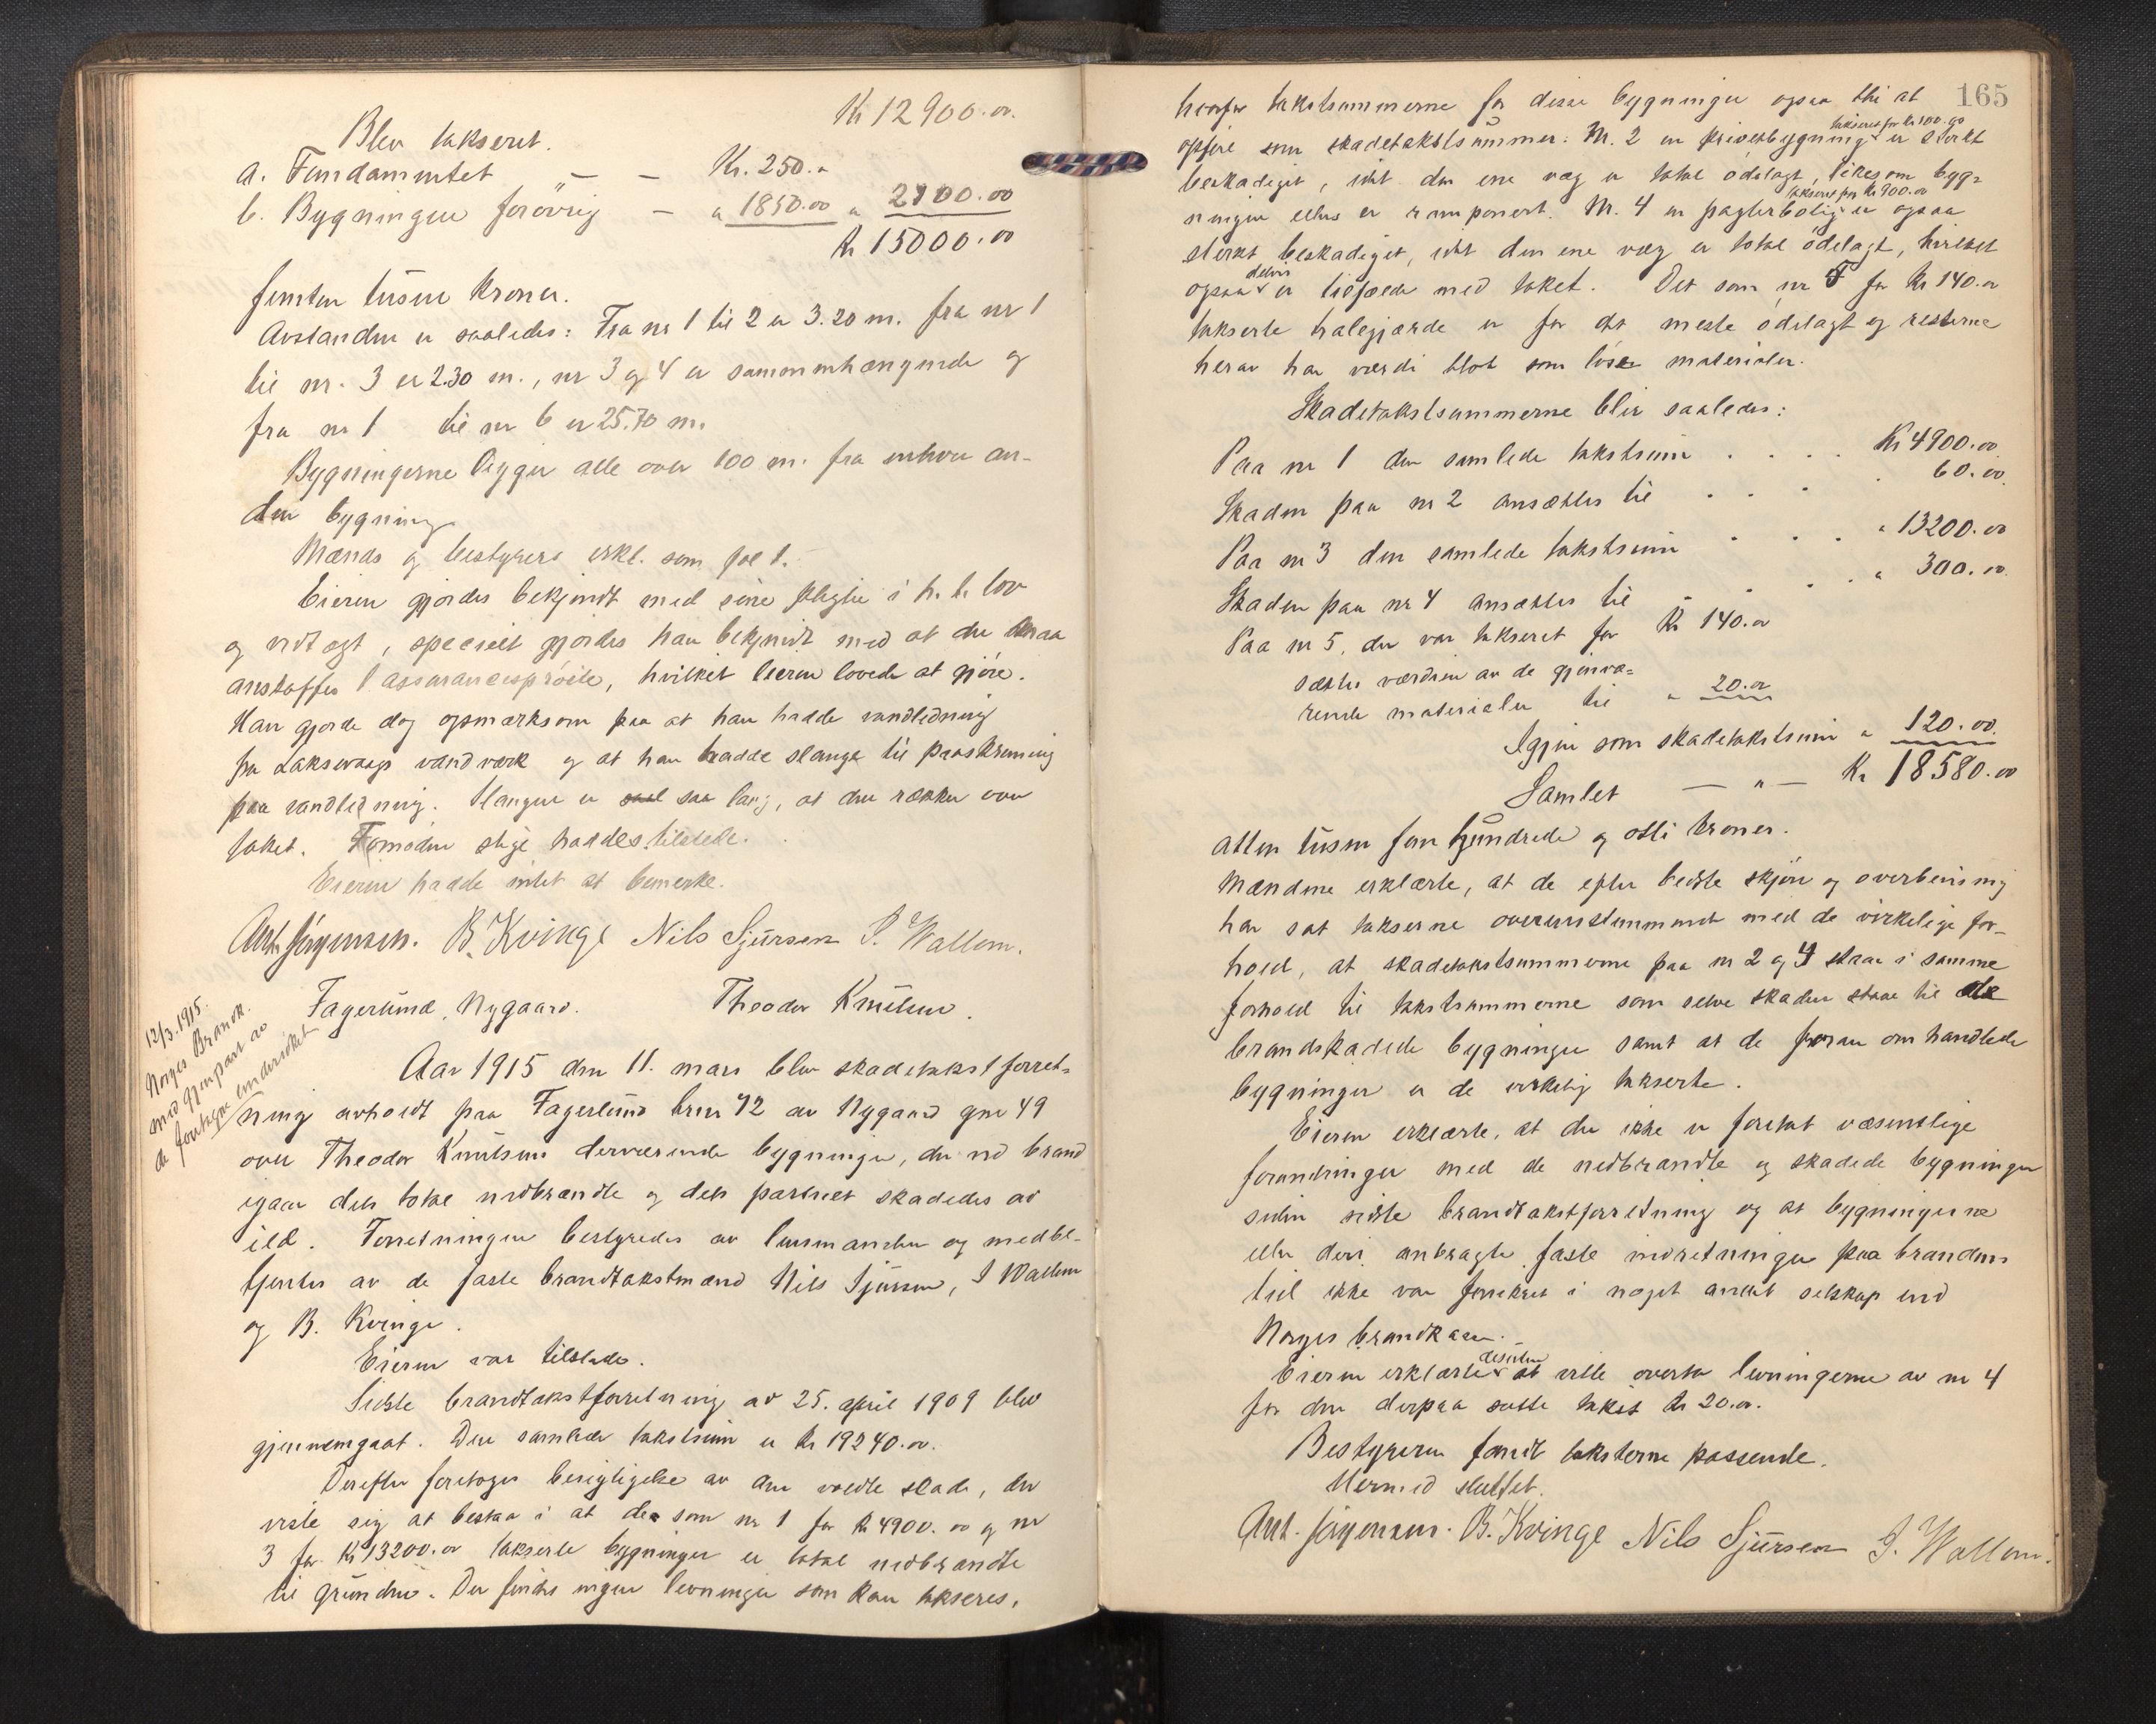 Kr 12900.00
Blev takseret.
a. Fundamentet — — Kr. 250.00
b. Bygningen forövrig — " 1850.00 " 2100.00
Kr 15000.00
femten tusen kroner.
Avstanden er saaledes: Fra nr 1 til 2 er 3.20 m. fra nr 1
til nr. 3 er 2.30 m., nr 3 og 4 er sammenhængende og
fra nr 1 til nr 6 er 25.70 m.
Bygningerne ligger alle over 100 m. fra enhver an-
den bygning.
Mænds og bestyrers erkl. som fol 1.
Eieren gjordes bekjendt med sine pligter i h. t. lov
og vedtægt, specielt gjordes han bekjendt med at der maa
anskaffes 1 assurancesprøite, hvilket eieren lovede at gjöre.
Han gjorde dog opmærksom paa at han hadde vandledning
fra Laksevaags vandværk og at han hadde slange til paaskruning
paa vandledning. Slangen er saa lang, at den rækker over
taket. Fornöden stige haddes tilstede.
Eieren hadde intet at bemerke.
Ant. Jörgensen. B. Kvinge Nils Sjursen S. Wallem.
Fagerlund, Nygaard. Theodor Knutsen.
12/3.1915.
Norges Brandk.
med gjenpart av
de foretagne undersökelser
Aar 1915 den 11. mars blev skadetakstforret-
ning avholdt paa Fagerlund brnr 72 av Nygaard gnr 49
over Theodor Knutsens derværende bygninger, der ved brand
igaar dels total nedbrændte og dels partielt skadedes av
ild. Forretningen bestyredes av lensmanden og medbe-
tjentes av de faste brandtakstmænd Nils Sjursen, S Wallem
og B. Kvinge.
Eieren var tilstede.
Sidste brandtakstforretning av 25. april 1909 blev
gjennemgaat. Den samlede takstsum er Kr 19240.00.
Derefter foretoges besigtigelse av den voldte skade, der
viste sig at bestaa i at de som nr 1 for Kr 4900.00 og nr
3 for Kr 13200.00 takserte bygninger er total nedbrændte
til grunden. Der findes ingen levninger som kan takseres,
165
hvorfor takstsummerne for disse bygninger ogsaa blir at
opföre som skadetakstsummer: Nr. 2 en privetbygning takseret for kr 100.00 er sterkt
beskadiget, idet den ene væg er total ödelagt, likesom byg-
ningen ellers er ramponert. Nr. 4 en pagterbolig takseret for kr 900.00 er ogsaa
sterkt beskadiget, idet den ene væg er total ödelagt,
ogsaa delvis er tilfælde med taket. Det som nr 5 for Kr 140.00
takserte halegjærde er for det meste ödelagt og resterne
herav har værdi blot som löse materialer.
Skadetakstsummerne blir saaledes:
Paa nr 1 den samlede takstsum . . . . Kr 4900.00
Skaden paa nr 2 ansættes til . . . . 60.00
Paa nr 3 den samlede takstsum . . . " 13200.00
Skaden paa nr 4 ansættes til . . . " 300.00
Paa nr 5, der var takseret for Kr 140.00
sættes værdien av de gjenvæ-
rende materialer til " 20.00
Igjen som skadetakstsum " 120.00
Samlet — " — Kr 18580.00
atten tusen fem hundrede og otti kroner.
Mændene erklærte, at de efter bedste skjön og overbevisning
har sat takserne overensstemmende med de virkelige for-
hold, at skadetakstsummerne paa nr 2 og 4 staar i samme
forhold til takstsummerne som selve skaden staar til de
brandskadede bygninger samt at de foran omhandlede
bygninger er de virkelig takserte.
Eieren erklærte, at der ikke er foretat væsentlige
forandringer med de nedbrændte og skadede bygninger
siden sidste brandtakstforretning og at bygningerne
eller deri anbragte faste indretninger paa brandens
tid ikke var forsikret i noget andet selskap end
Norges brandkasse.
Eieren erklærte desuten at ville overta levningerne av nr 4
for den derpaa satte takst Kr 20.00.
Bestyreren fandt taksterne passende.
Hermed sluttet.
Ant. Jörgensen. B. Kvinge Nils Sjursen S. Wallem.